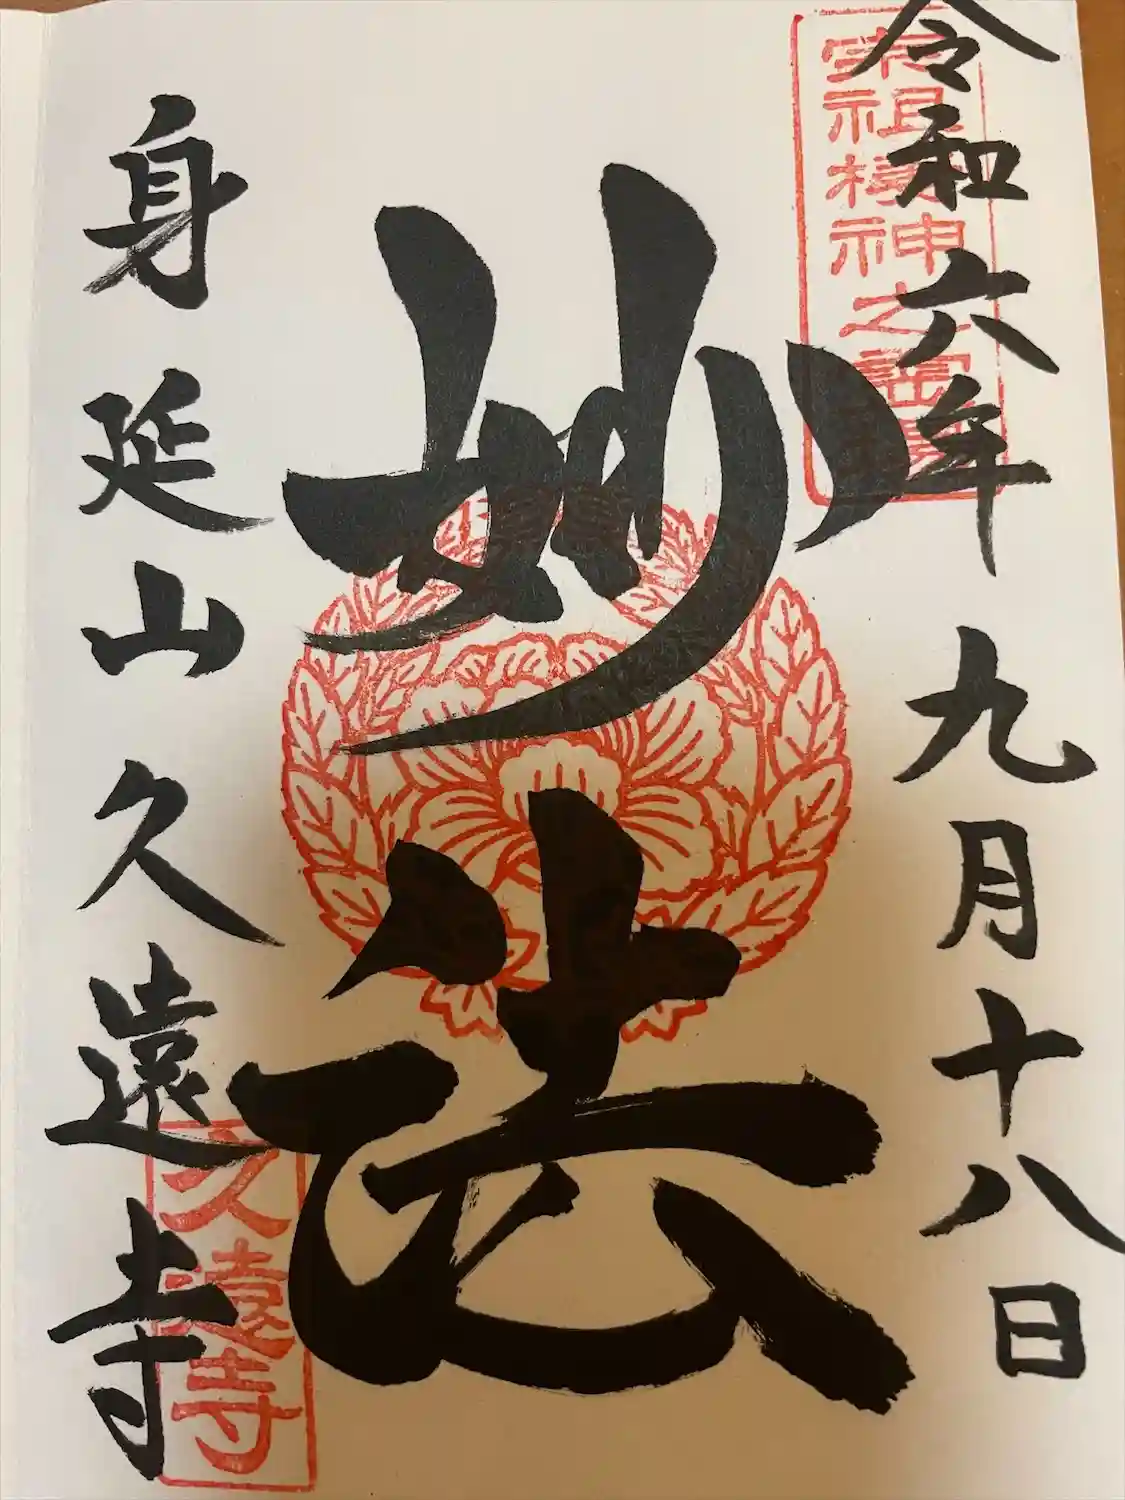 令和六年九月十八日
宗祖棲神之
妙法
身延山久遠寺
久遠寺